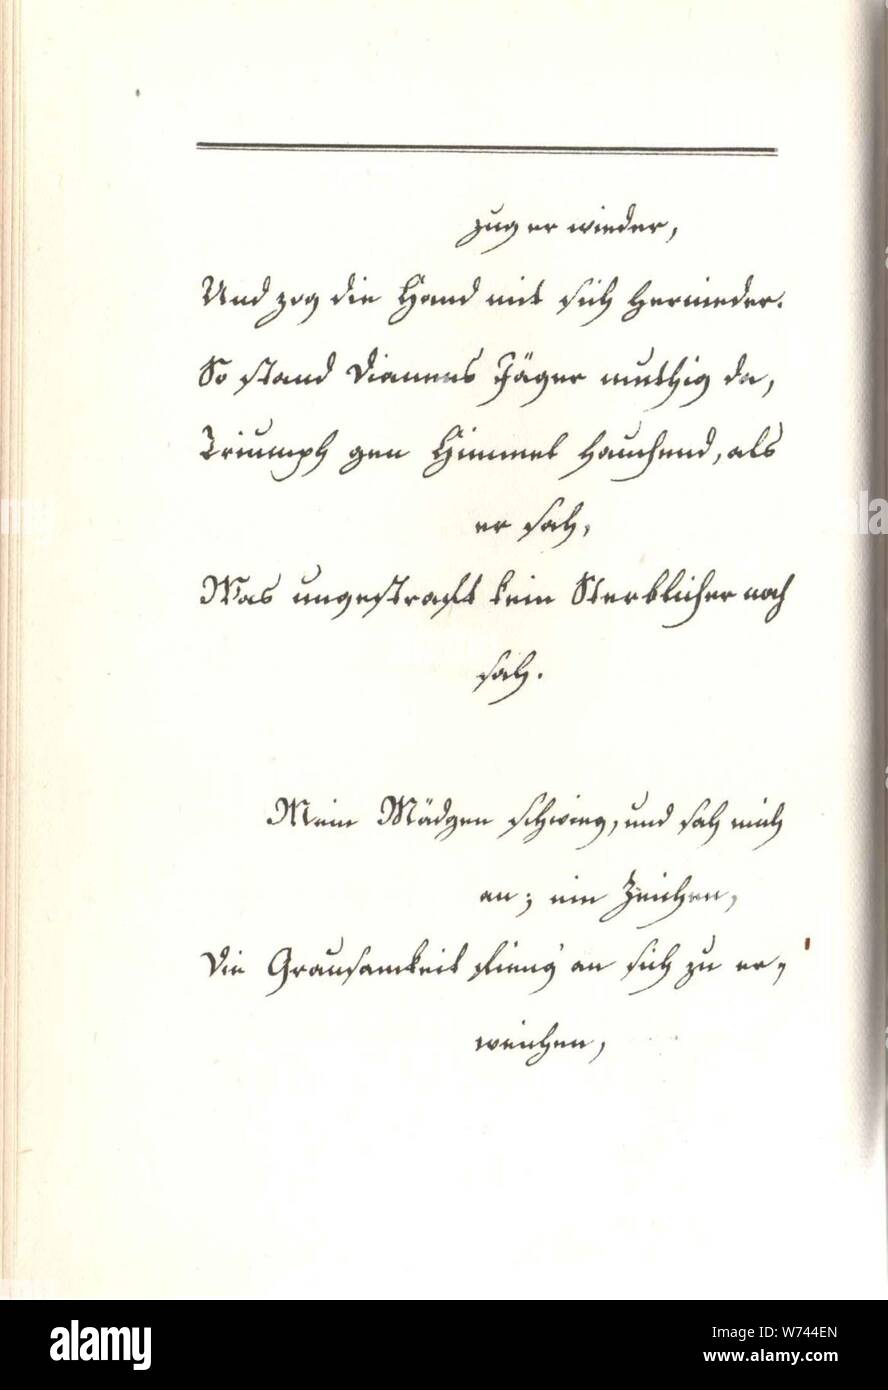 zug er wieder,
Und zog die Hand mit sich hernieder.
So stand Dianens Jäger muthig da,
Triumph gen Himmel hauchend, als
er sah,
Was ungestraft kein Sterblicher noch
sah.
Mein Mädgen schwieg, und sah mich
an; ein Zeichen,
Die Grausamkeit fieng an sich zu er-
weichen,
alamy
Image ID: W744EN
www.alamy.com